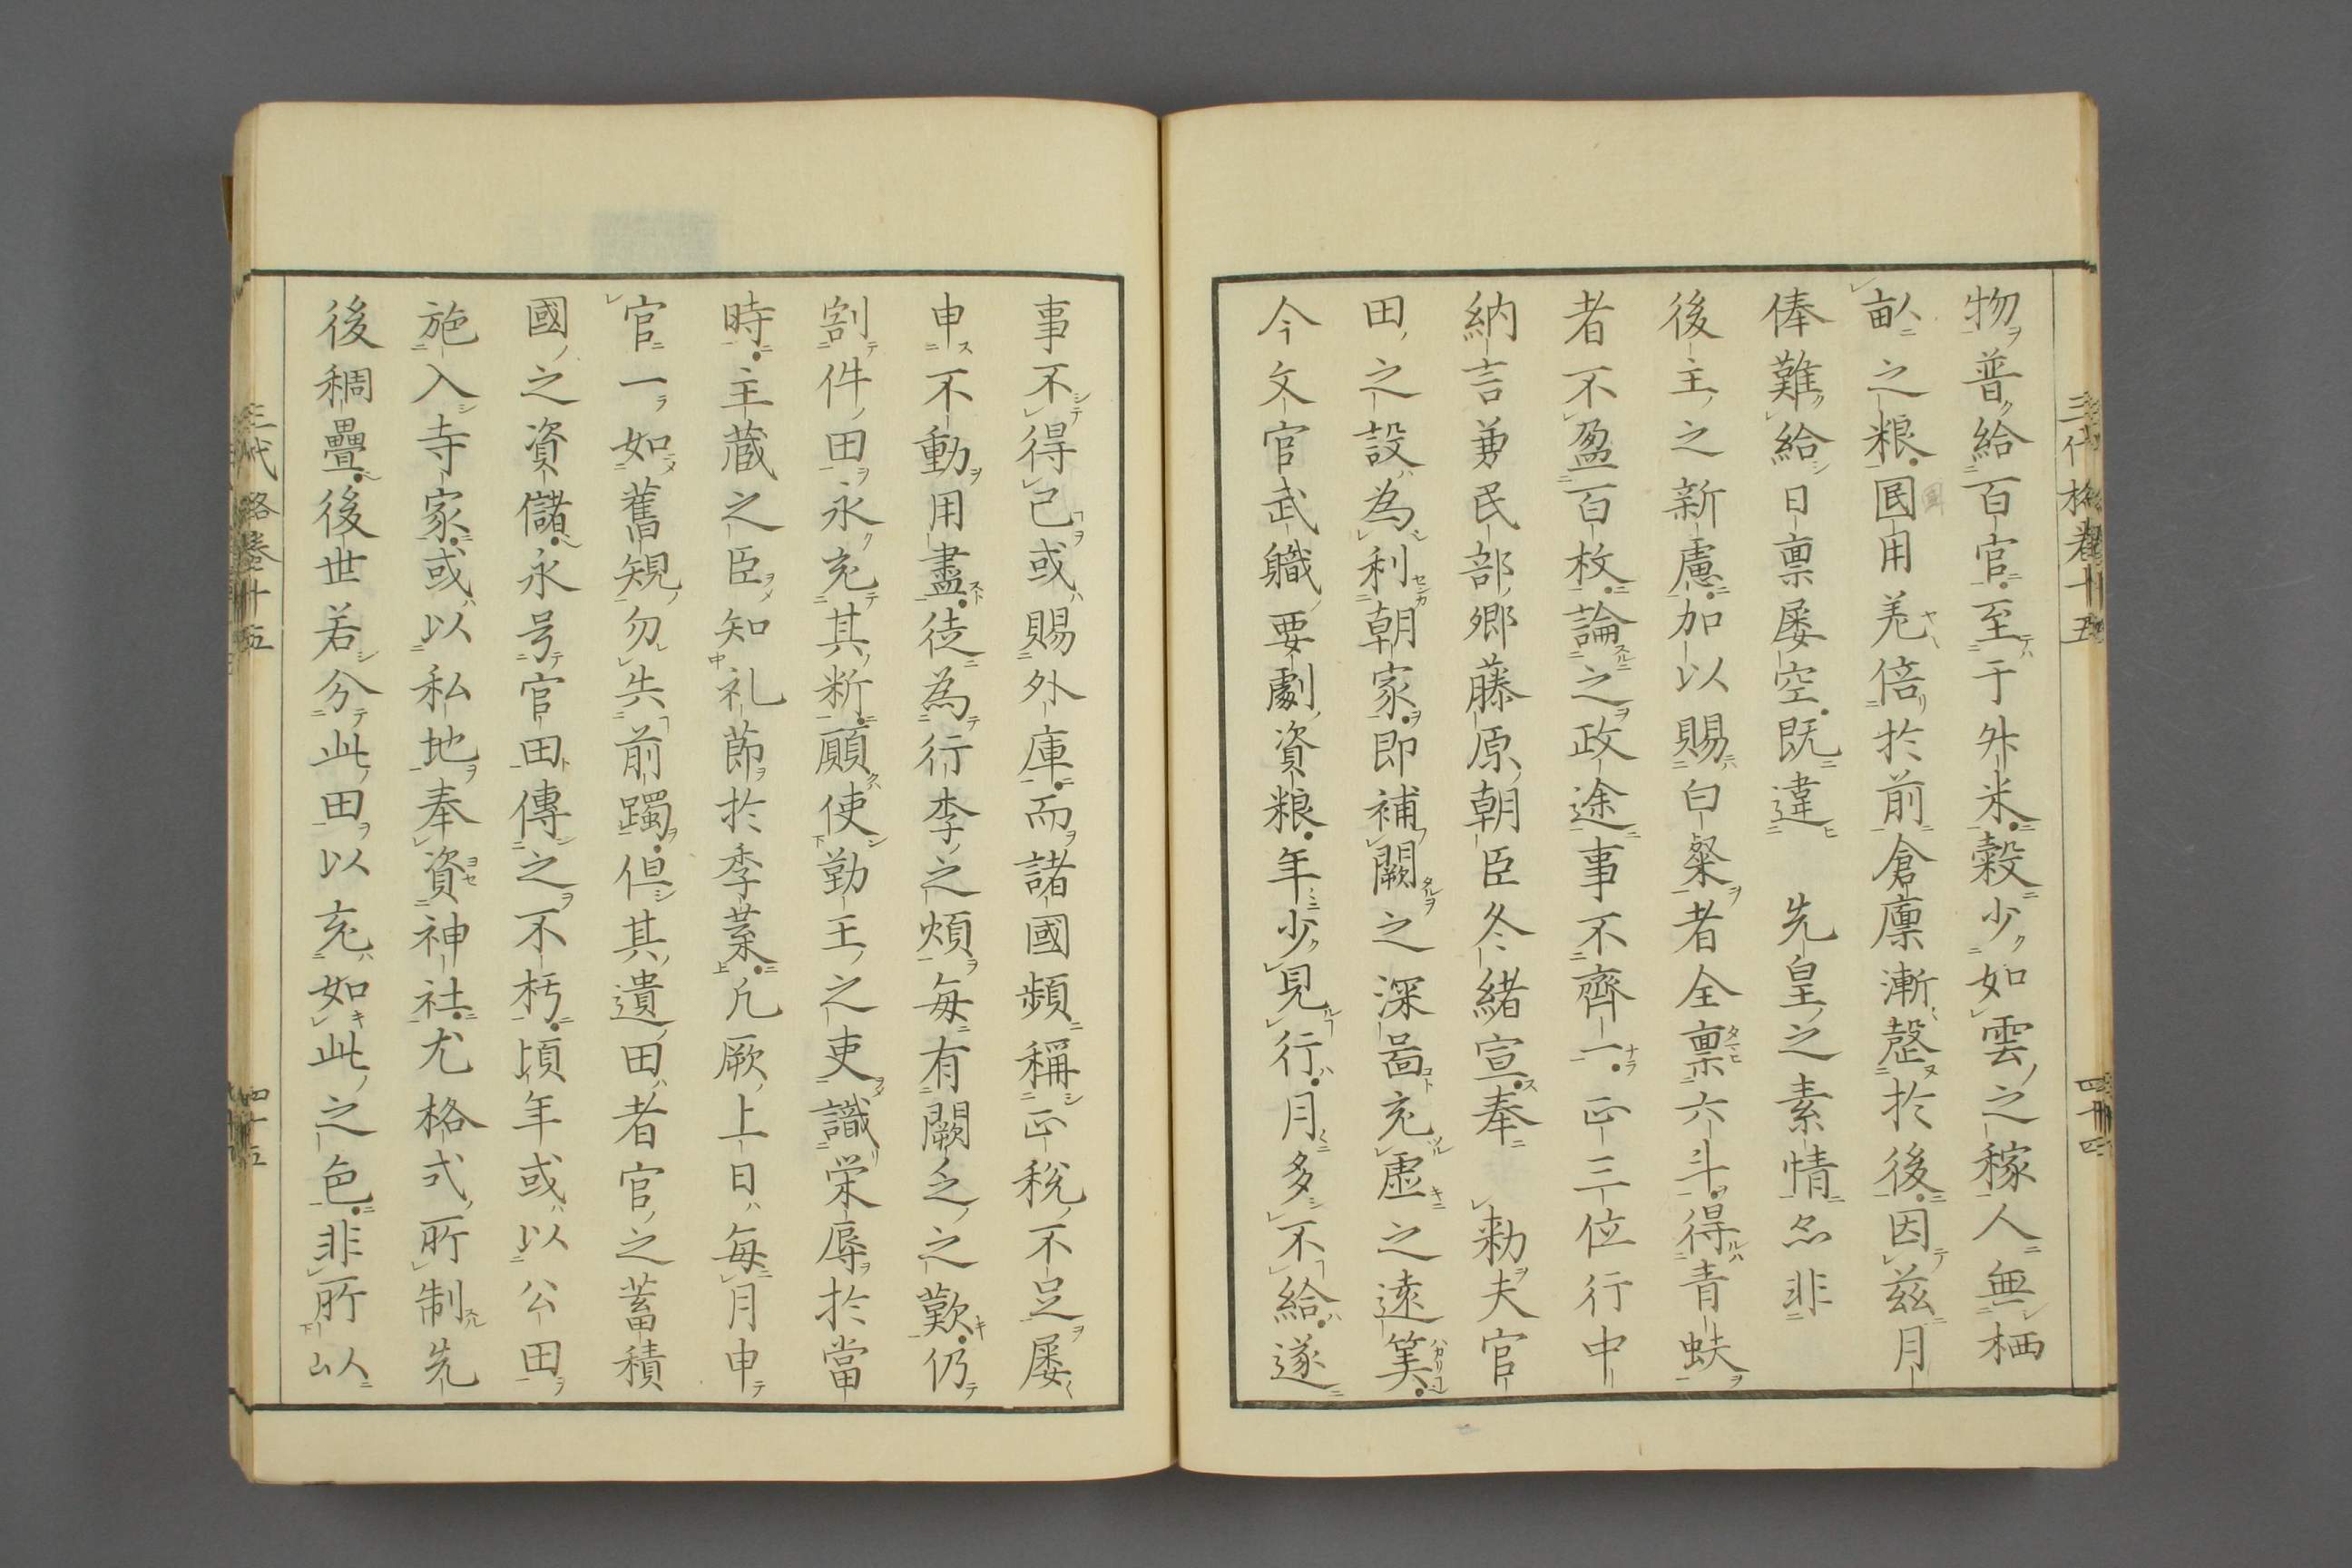 三代格卷十五
四十四
物普給百官至于舛米穀少如雲之稼人無栖
畝之粮國用羌倍於前倉廩漸罄於後因茲月
俸難給日稟屡空既違　先皇之素情亦非
後主之新慮加以賜白粲者全稟六斗得青蚨
者不盈百枚論之政途事不齊一正三位行中
納言兼民部郷藤原朝臣冬緒宣奉　勅夫官
田之設為利朝家即補闕之深啚充虚之遠筭
今文官武職要劇資粮年少見行月多不給遂
事不得已或賜外庫而諸國頻稱正税不足屡
申不動用盡徒為行李之煩毎有闕乏之歎仍
割件田永充其断願使勤王之吏識栄辱於當
時主蔵之臣知礼莭於季葉凢厥上日毎月申
官一如舊規勿失前躅但其遺田者官之蓄積
國之資儲永号官田傳之不朽頃年或以公田
施入寺家或以私地奉資神社尤格式所制先
後稠疊後世若分此田以充如此之色非所以
三代格卷十五
四十五